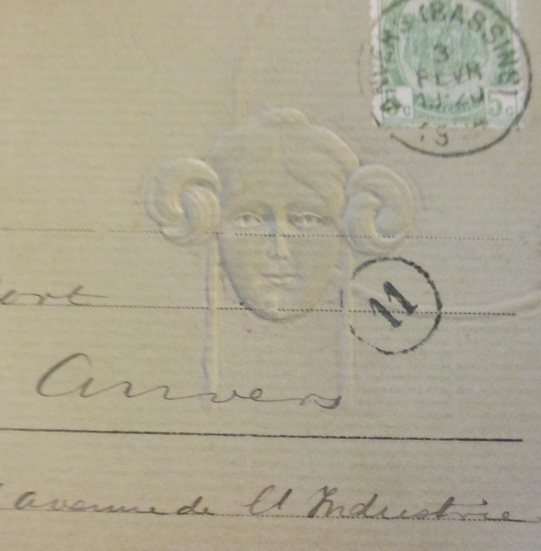 ANVERS (BASSINS)
3
FEVR
5c 5c
11
ort
Anvers
avenue de l'Industrie